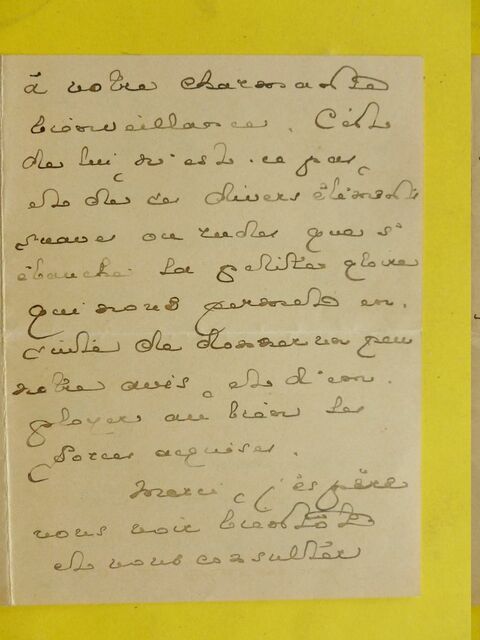 à votre charmante
bienveillance. C'est
de lui n'est-ce pas,
et de ces divers éléments
suaves ou rudes que s'
ébauche la petite gloire
qui nous permet en-
suite de donner un peu
notre avis, et d'em-
ployer au bien les
forces acquises.
Merci, j'espère
vous voir bientôt
et vous consulter